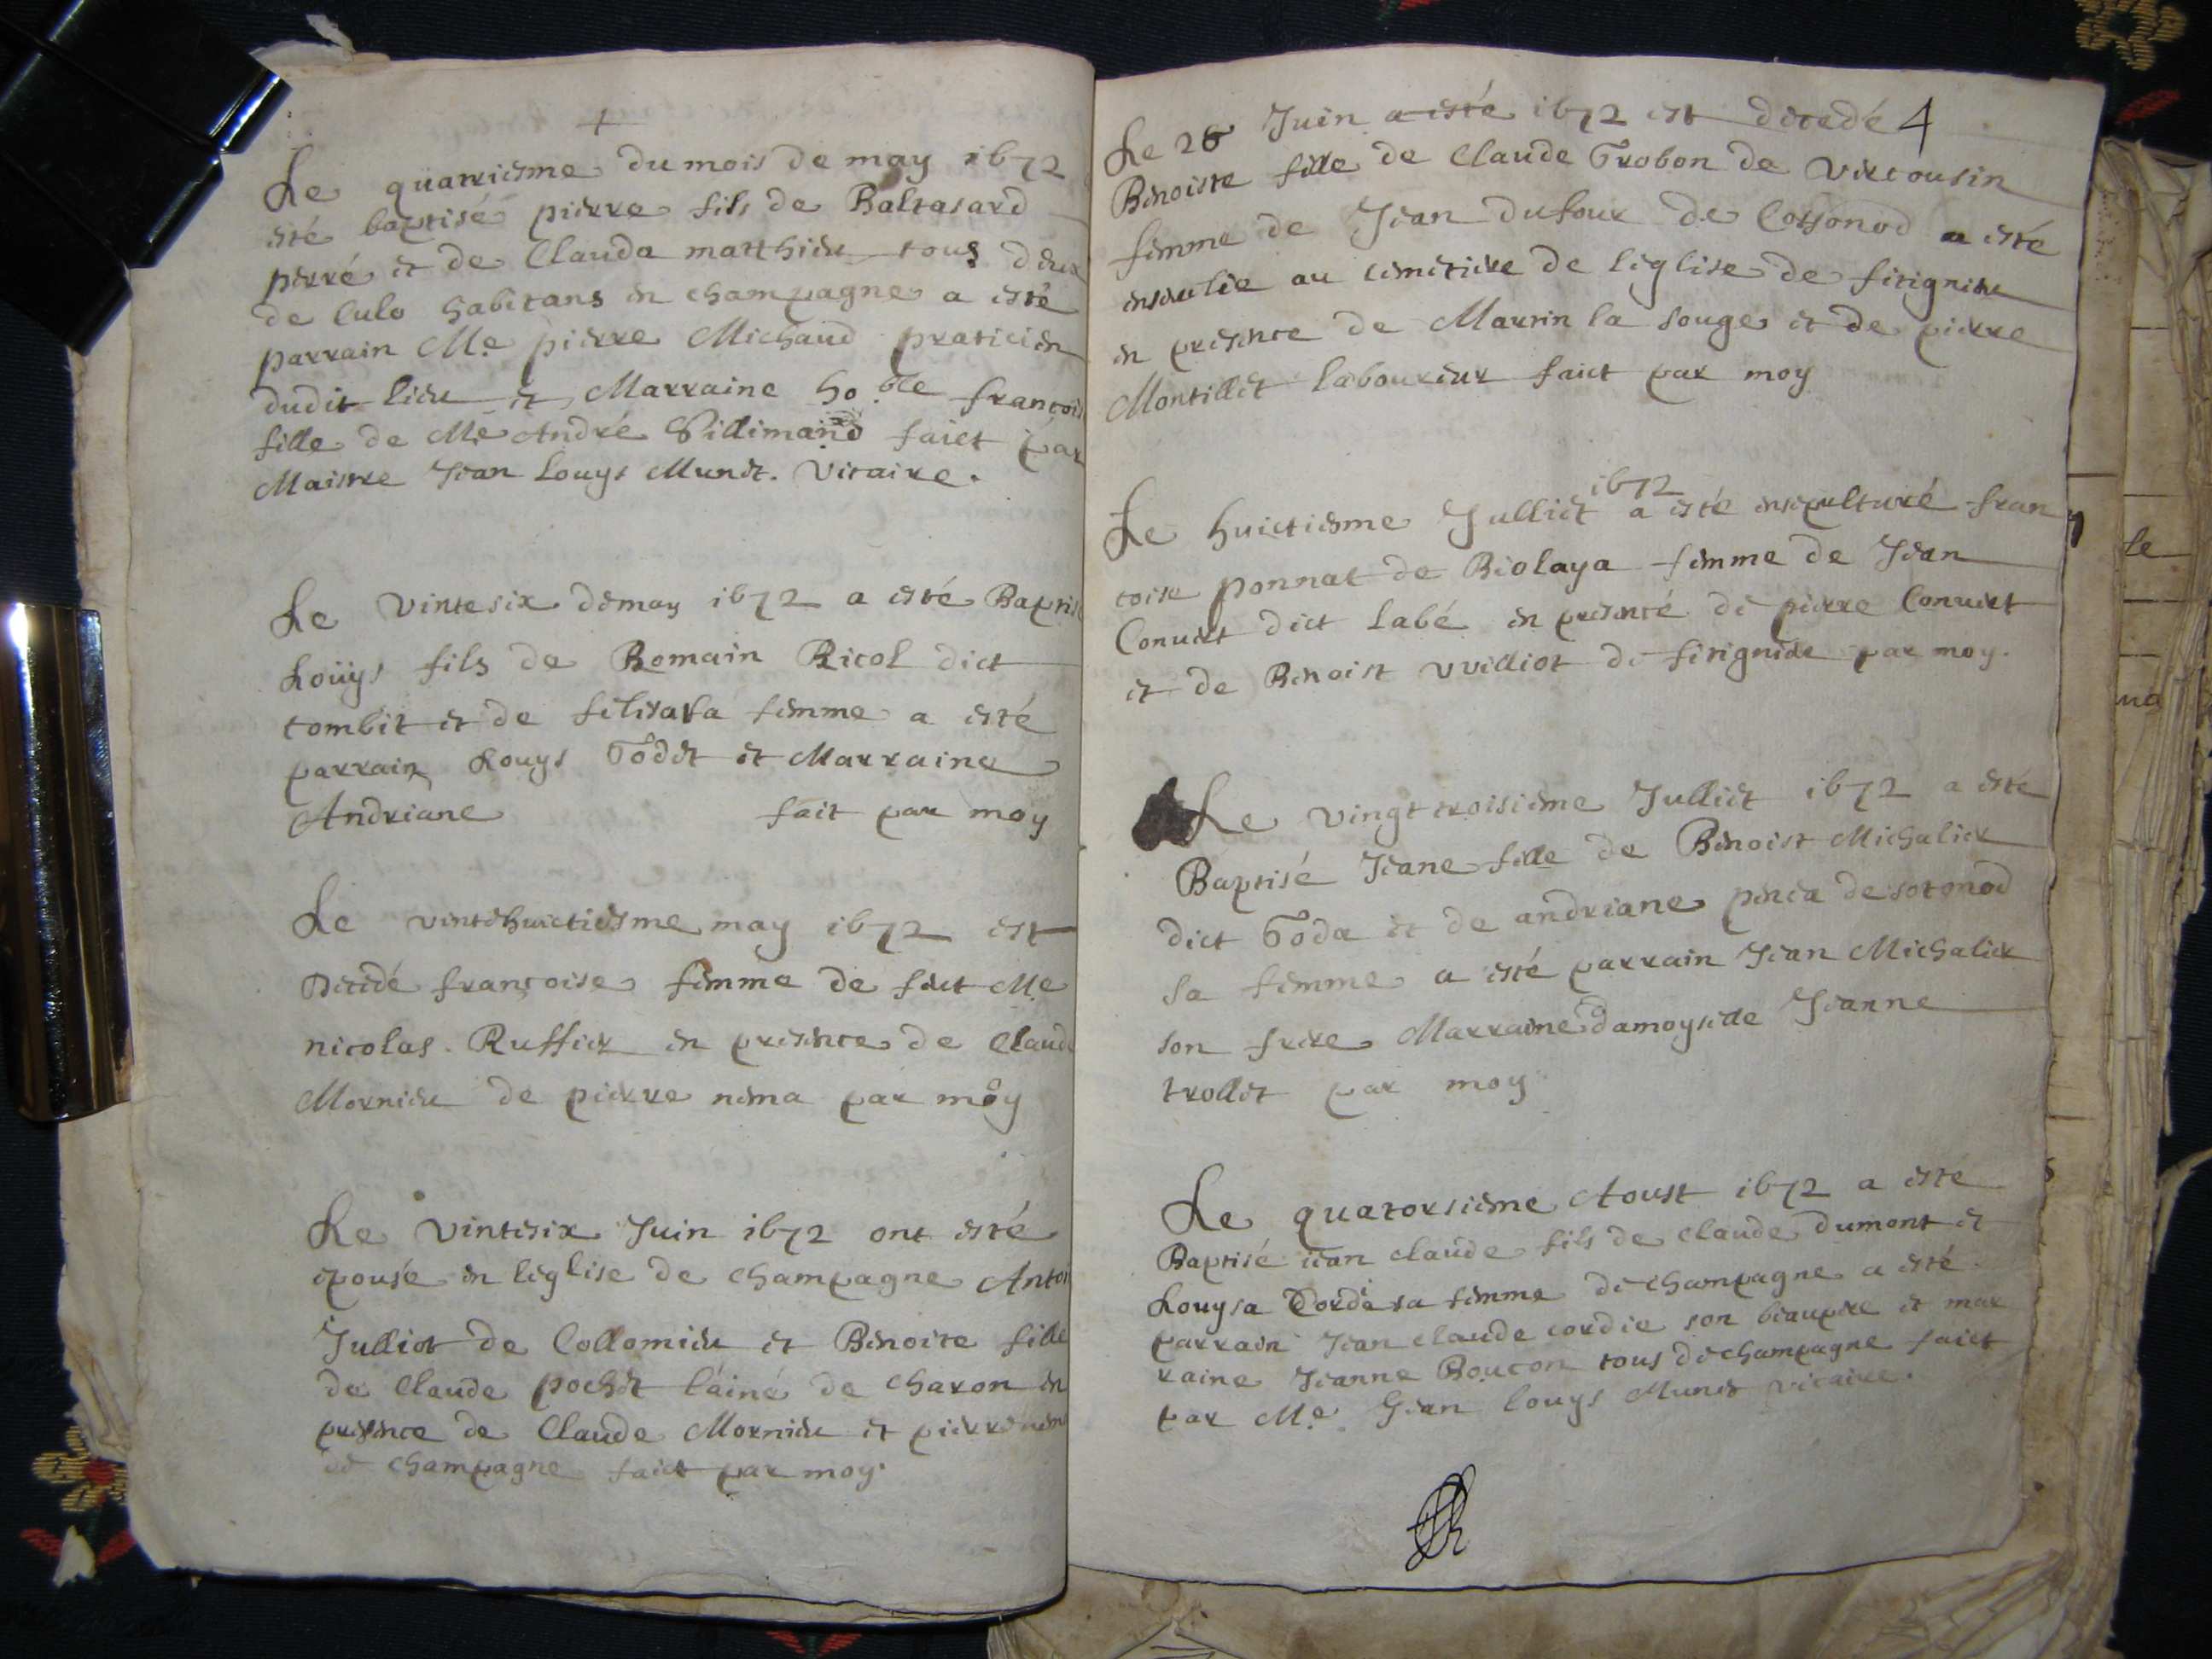 Le quatriesme du mois de may 1672
esté baptisé pierre fils de Baltasard
perré et de Clauda matthieu tous deux
de Culo habitans en champagne a esté
parrain Me pierre Michaud praticien
dudit lieu et Marraine ho.ble francois
fille de Me André faict par
Maistre Jean Louys Munet. Vicaire.
Le Vintesix demay 1672 a esté Baptisé
Loüys fils de Romain Ricol dict
tombit et de sa femme a esté
parrain Louys Godet et Marraine
Andriane fait par moy
Le vintehuictiesme may 1672 est
Decedé françoise femme de feut Me
nicolas. Ruffier en presence de Claude
Mornieu de pierre nema par moy
Le Vintesix Juin 1672 ont esté
epousé en leglise de champagne Antoi
Julliot de Collomieu et Benoite fille
de Claude pochet láiné de charon en
presence de Claude Mornieu et pierre nema
de champagne faict par moy.
Le 26 Juin a esté 1672 est decedé 4
Benoiste fille de Claude Trobon de Vircousin
femme de Jean dufour de Cossonod a esté
ensevelie au cimetiere de léglise de fitignieu
en presence de Martin la souge et de pierre
Montillet laboureur faict par moy
1672
Le huictiesme Julliet a esté ensepulturé fran
coise ponnat de Biolaya femme de Jean
Convert dict labé en presencé de pierre Convert
et de Benoist vvilliot de fitignieu par moy.
Le vingt troisiéme Julliet 1672 a esté
Baptisé Jeane fille de Benoist Michalier
dict Goda et de andriane de sotonod
sa femme a esté parrain Jean Michalier
son frere Marraine damoyselle Jeanne
trollet par moy
Le quatorsiéme Aoust 1672 a esté
Baptisé iean claude fils de claude dumont et
Louysa Cordé sa femme de champagne a esté
parrain Jean claude cordie son beaupere et mar
raine Jeanne Boucon tous de champagne faict
par Me. Jean louys Munet vicaire.